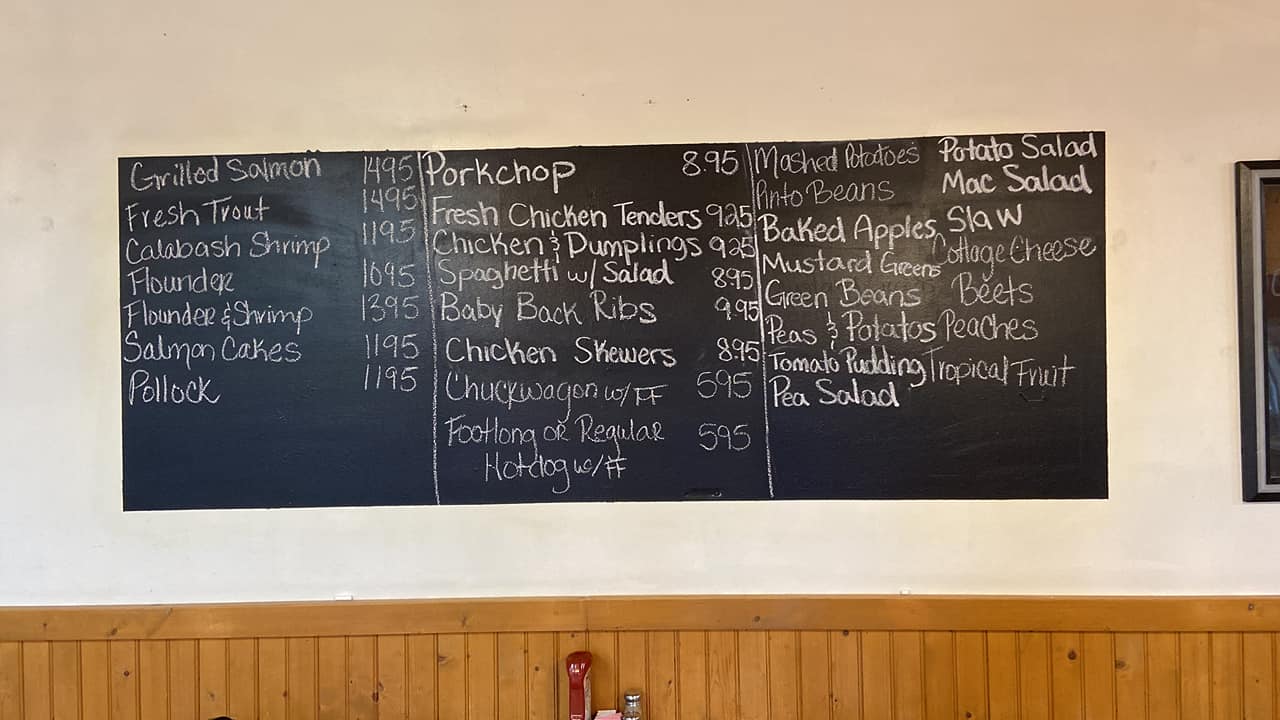 Grilled Salmon 1495
Fresh Trout 1495
Calabash Shrimp 1195
Flounder 1095
Flounder & Shrimp 1395
Salmon Cakes 1195
Pollock 1195
Porkchop 8.95
Fresh Chicken Tenders 925
Chicken & Dumplings 925
Spaghetti w/ Salad 895
Baby Back Ribs 9.95
Chicken Skewers 895
Chuckwagon w/ FF 595
Footlong or Regular 595
Hotdog w/ FF
Mashed Potatoes
Pinto Beans
Baked Apples
Mustard Greens
Green Beans
Peas & Potatos
Tomato Pudding
Pea Salad
Potato Salad
Mac Salad
Slaw
Cottage Cheese
Beets
Peaches
Tropical Fruit